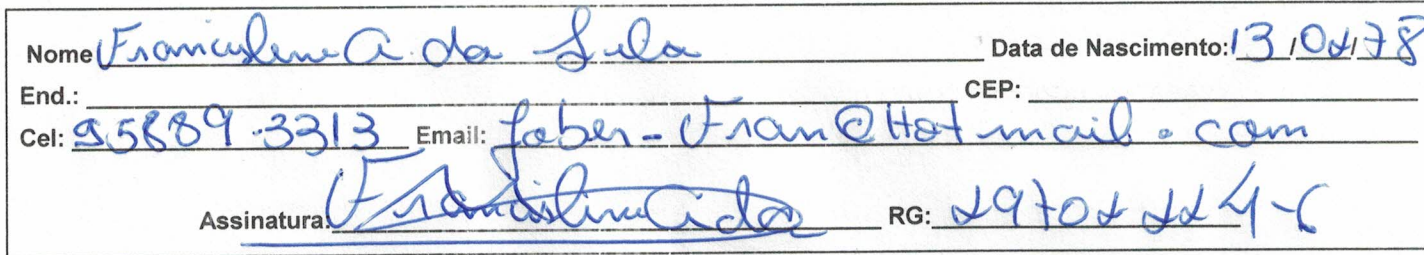 Nome Francislene A. da Silva Data de Nascimento: 13/02/78
End.: CEP:
Cel: 95889-3313 Email: faber-fran@Hotmail.com
Assinatura: RG: